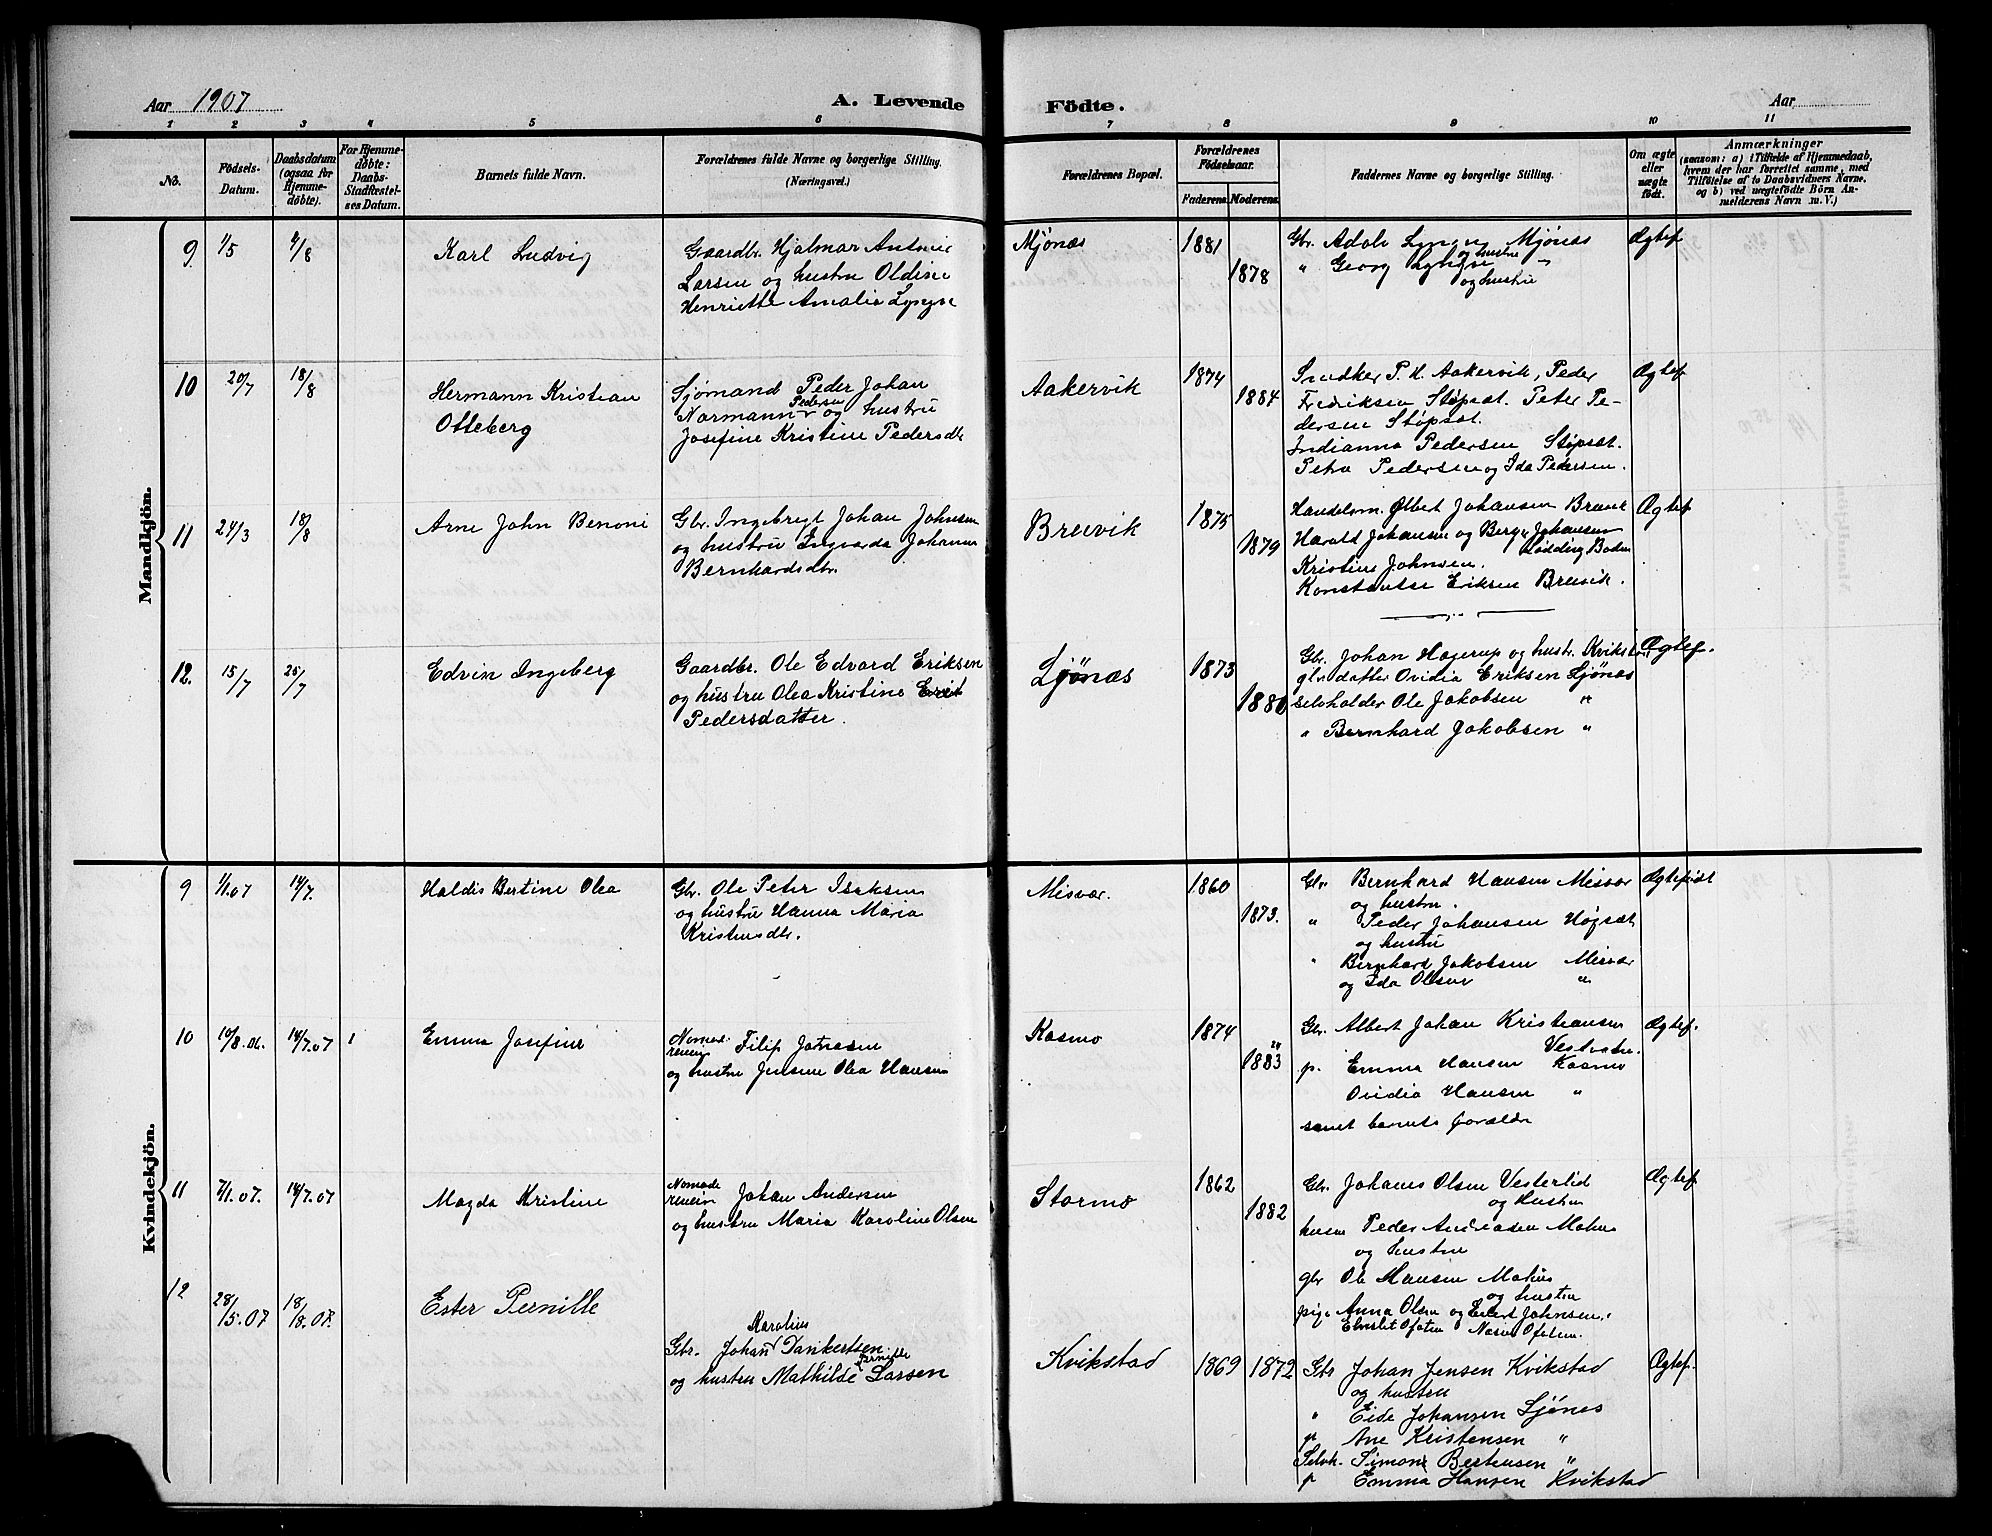 Aar 1907
A. Levende Födte.
Aar
1 2 3 4 5 6 7 8 9 10 11
No.
Födsels-
Datum.
Daabsdatum
(ogsaa for
Hjemme-
döbte).
For Hjemme-
döbte:
Daabs-
Stadfæstel-
ses Datum.
Barnets fulde Navn.
Forældrenes fulde Navne og borgerlige Stilling.
(Næringsvei.)
Forældrenes Bopæl.
Forældrenes
Födselsaar.
Faderens. Moderens.
Faddernes Navne og borgerlige Stilling.
Om ægte
eller
uægte
födt.
Anmærkninger
(saasom: a) i Tilfælde af Hjemmedaab,
hvem der har forrettet samme, med
Tilföielse af to Daabsvidners Navne,
og b) ved uægtefödte Börn An-
melderens Navn m. V.)
Mandkjön.
9 1/5 4/8 Karl Ludvig
Gaardbr. Hjalmar Antonie
Larsen og hustru Oldine
Henriette Amalie Lyngve
Mjønæs 1881
1878
Gbr. Adolv Lyngve Mjønæs
og hustru
" Georg Lyngve "
og hustru
Ægtef
10 20/7 18/8 Hermann Kristian
Otteberg
Sjømand Peder Johan
Pedersen
Normann og hustru
Josefine Kristine Pedersdtr
Aakervik 1874
1884
Snedker P. H. Aakervik, Peder
Fredriksen Støpsæt. Peter Pe-
dersen Støpsæt.
Indianna Pedersen Støpsæt.
Petra Pedersen og Ida Pedersen.
Ægtef
11 24/3 18/8 Arne John Benoni
Gbr. Ingebrigt Johan Johnsen
og hustru Ingvarda Johanna
Bernhardsdtr.
Breivik 1875
1879
Handelsm. Albert Johansen Breivik
Harald Johansen og Berge Johansen
Lødding Bodin
Kristine Johnsen.
Konstantse Eriksen Breivik.
Ægtef
12. 15/7 25/7 Edvin Ingeberg
Gaardbr. Ole Edvard Eriksen
og hustru Olea Kristine
Pedersdatter.
Ljønæs 1873
1880
Gbr. Johan Hagerup og hustr. Kvikstad
gbrdatter Ovidia Eriksen Ljønæs
selvholder Ole Jakobsen "
" Bernhard Jakobsen "
Ægtef.
Kvindekjön.
9 1/1.07 14/7. Haldis Bertine Olea
Gbr. Ole Peter Isaksen
og hustru Hanna Maria
Kristensdtr.
Misvær. 1860
1873.
Gbr Bernhard Hansen Misvær
og hustru.
" Peder Johansen Høgsæt
og hustru
" Bernhard Jakobsen Misvær
og Ida Olsen "
Ægtefödt
10 10/8.06. 14/7.07 1 Emma Josefine
Nomade
renein Filip Jonassen
og hustru Jensine Olea Hansen
Kosmo 1874
1883
Gbr. Albert Johan Kristiansen
Vestvatn.
p. Emma Hansen Kosmo
Ovidia Hansen "
samt barnets forældre
Ægtef.
11 7/1.07. 14/7.07 Magda Kristine
Nomade
renein Johan Andersen
og hustru Maria Karoline Olsen
Stormo 1862
1882
Gbr. Johans Olsen Vesterlid
og Hustru
husm Peder Andreasen Mohus
og hustru
gbr Ole Hansen Mohus
og hustru
pige Anna Olsen og Edvart Johnsen.
Ægtef
12 28/5.07 18/8.07. Ester Pernille
Karolius
Gbr. Johan Dankertsen
Pernille
og hustru Mathilde Larsen
Kvikstad 1869 1872
Gbr Johan Jensen Kvikstad
og hustru
" Eide Johansen Ljønes
p Ane Kristensen "
Selvh. Simon Berthusen "
p Emma Hansen Kvikstad
Ægtef.